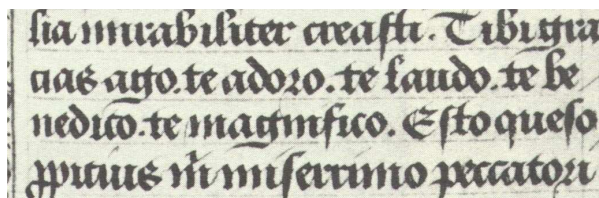 lia mirabiliter creasti. Tibi gra
cias ago. te adoro. te laudo. te be
nedico. te magnifico. Esto queso
ꝓpicius m̄ miserrimo peccatori